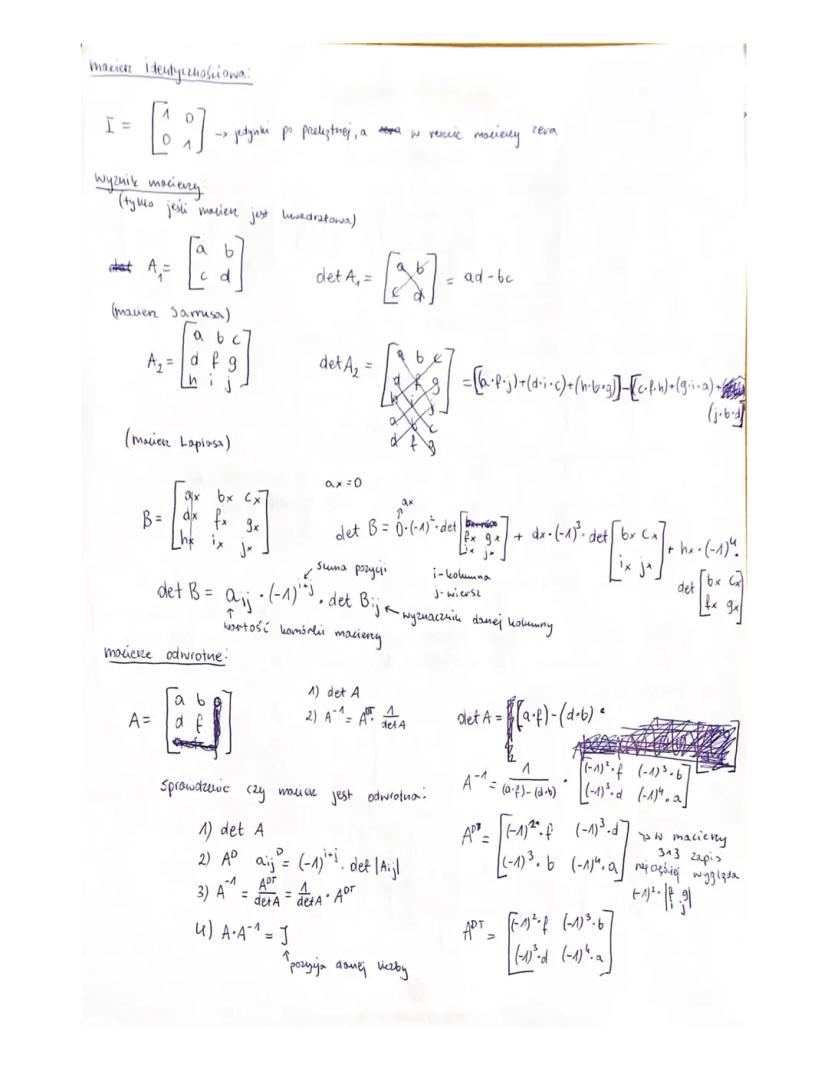 macierz identycznościowa:
I = [1 0; 0 1] → jedynki po przekątnej, a w reszcie macierzy zera
Wyznik macierzy:
(tylko jeśli macierz jest kwadratowa)
A₁ = [a b; c d]   det A₁ = [a b; c d] = ad-bc
(macierz Sarrusa)
A₂ = [a b c; d f g; h i j]   det A₂ = [a b c; d f g; h i j] a b c d f g = [(a·f·j)+(d·i·c)+(h·b·g)]-[(c·f·h)+(g·i·a)+(j·b·d)]
(macierz Laplasa)
ax=0
B = [ax bx cx; dx fx gx; hx ix jx]
ax
det B = 0·(-1)²·det [fx gx; ix jx] + dx·(-1)³·det [bx cx; ix jx] + hx·(-1)⁴·det [bx cx; fx gx]
suma pozycji
i-kolumna
j-wiersz
det B = aij·(-1)^(i+j)·det Bij ← wyznacznik danej kolumny
wartość komórki macierzy
macierze odwrotne:
A = [a b; d f]
1) det A
2) A⁻¹ = A^DT · 1/det A
det A = (a·f)-(d·b)
A⁻¹ = 1/((a·f)-(d·b)) · [(-1)²·f (-1)³·b; (-1)³·d (-1)⁴·a]
Sprawdzenie czy macierz jest odwrotna:
1) det A
2) A^D aij^D = (-1)^(i+j) · det |Aij|
3) A⁻¹ = A^DT/det A = 1/det A · A^DT
4) A·A⁻¹ = J
↑ pozycja danej liczby
= [(-1)²·f (-1)³·d; (-1)³·b (-1)⁴·a] → w macierzy
3x3 zapis
najczęściej wygląda
(-1)²·|f g; i j|
A^DT = [(-1)²·f (-1)³·b; (-1)³·d (-1)⁴·a]